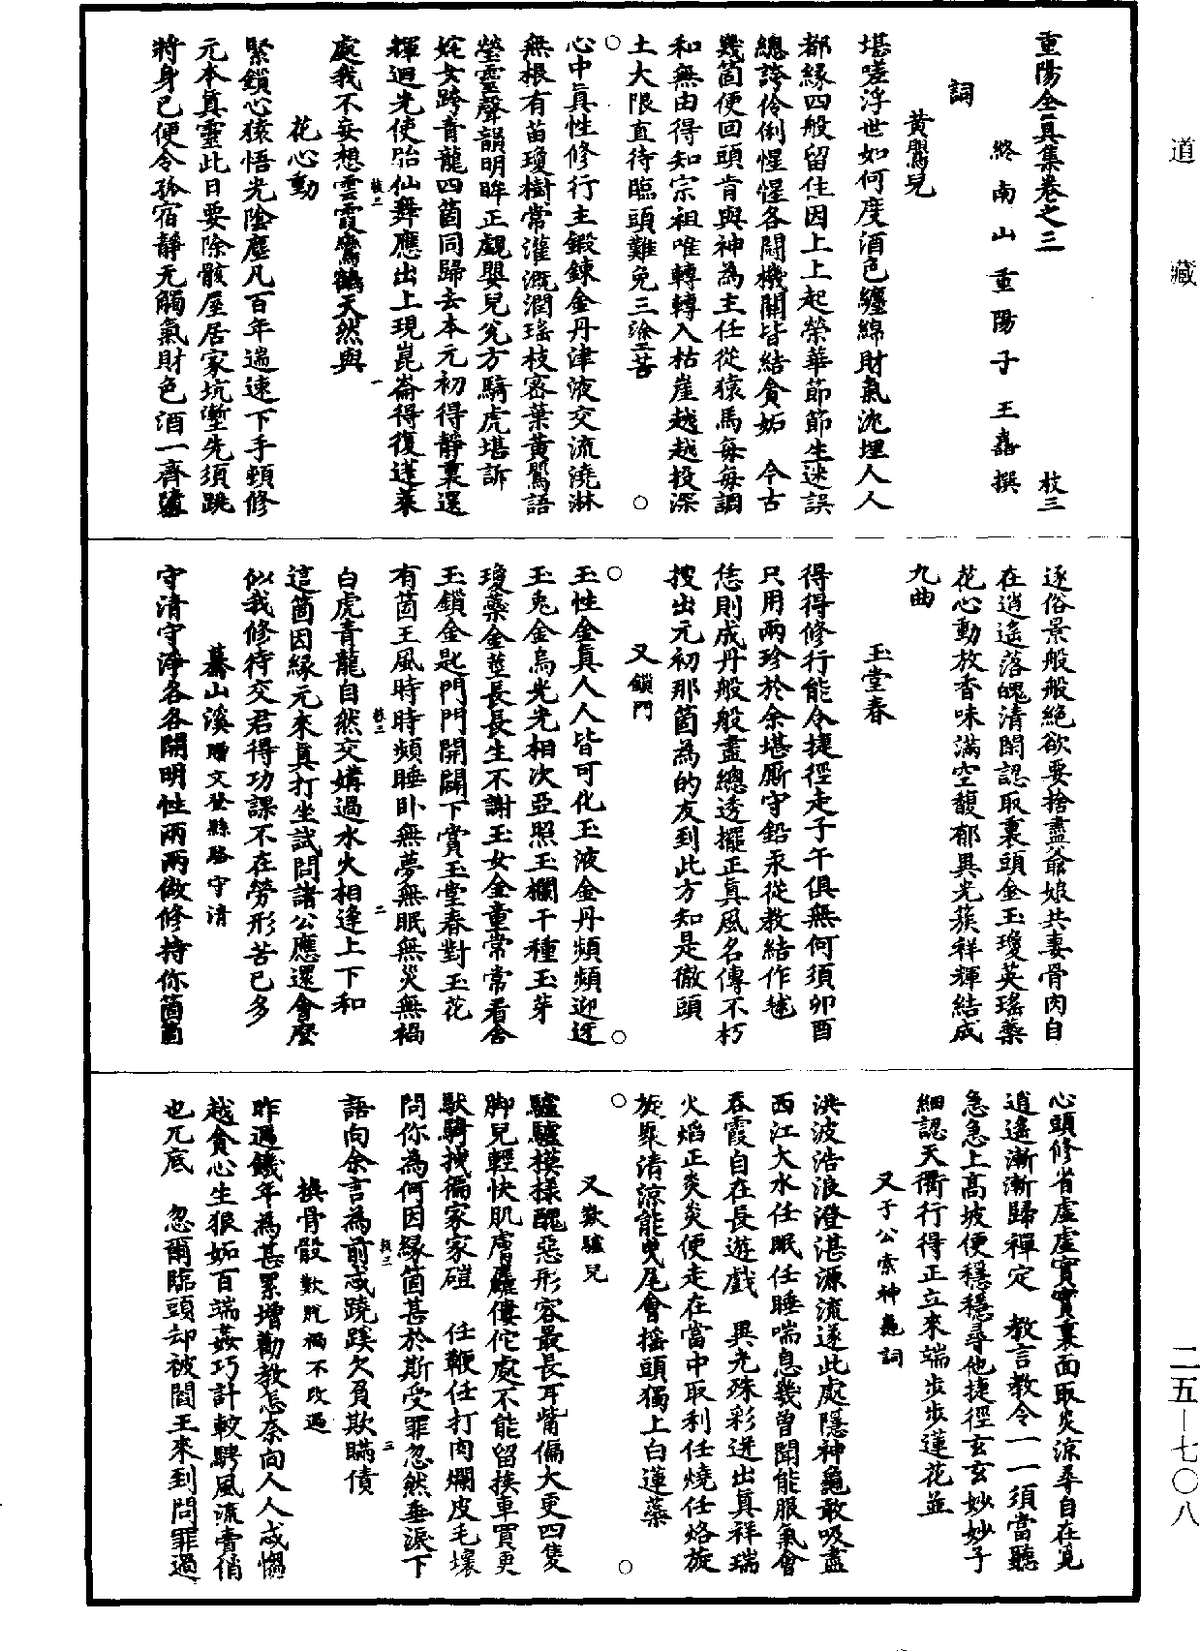 道藏
重陽全真集卷之三　枝三
終南山重陽子王嚞撰
詞
黃鸎兒
堪嗟浮世如何度酒色纏綿財氣沈埋人人
都緣四般留住因上上起榮華節節生迷誤
總誇伶俐惺惺各鬪機關皆結貪妬　今古
幾箇便回頭肯與神為主任從猿馬每每調
和無由得知宗祖唯轉轉入枯崖越越投深
土大限直待臨頭難免三塗苦　○
○
心中真性修行主鍛鍊金丹津液交流澆淋
無根有苗瓊樹常灌溉潤瑤枝密葉黃鸎語
瑩靈聲韻明眸正覷嬰兒兊方騎虎堪訴
姹女跨青龍四箇同歸去本元初得靜裏還
輝迴光使胎仙舞應出上現崑崙得復蓬萊
枝三　一
處我不妄想雲霞鸞鶴天然與
花心動
緊鎖心猿悟光陰塵凡百年遄速下手頸修
元本真靈此日要除骸屋居家坑塹先須跳
將身已便令孤宿靜无觸氣財色酒一齊隨
逐俗景般般絕欲要捨盡爺娘共妻骨肉自
在逍遙落魄清閑認取裏頭金玉瓊英瑤蘂
花心動放香味滿空馥郁異光簇祥輝結成
九曲
玉堂春
得得修行能令捷徑走子午俱無何須卯酉
只用兩珍於余堪厮守鉛汞從教結作毬
恁則成丹般般盡總透擺正真風名傳不朽
捜出元初那箇為的友到此方知是徹頭
又鎖門
○
玉性金真人人皆可化玉液金丹頻頻迎迓　○
玉兎金烏光光相次亞照玉欄干種玉芽
瓊蘂金莖長長生不謝玉女金童常常看舍
玉鎖金匙門門開闢下賞玉堂春對玉花
有箇王風時時頻睡卧無夢無眠無災無禍
枝三　二
白虎青龍自然交媾過水火相逢上下和
這箇因緣元來真打坐試問諸公應還會麼
似我修待交君得功課不在勞形苦已多
驀山溪贈文登縣駱守清
守清守淨各各開明性兩兩做修持你箇箇
心頭修省虛虛實實裏面取炎涼尋自在覓
逍遙漸漸歸禪定　教言教令一一須當聽
急急上高坡便穩穩尋他捷徑玄玄妙妙子
細認天衢行得正立來端步步蓮花並
又于公索神龜詞
洪波浩浪澄湛源流遂此處隱神龜敢吸盡
西江大水任眠任睡喘息幾曾聞能服氣會
吞霞自在長遊戲　異光殊彩迸出真祥瑞
火焰正炎炎便走在當中取利任燒任烙旋
旋聚清涼能曳尾會搖頭獨上白蓮蘂　○
又歎驢兒
○
驢驢模樣醜惡形容最長耳觜偏大更四隻
脚兒輕快肌膚麤僂佗處不能留挨車買更
馱騎拽徧家家磑　任鞭任打肉爛皮毛壞
問你為何因緣箇甚於斯受罪忽然垂淚下
枝三　三
語向余言為前咸蹺蹊欠負欺瞞債
換骨骰歎貺禍不改過
昨遇饑年為甚累增勸教怎奈向人人戒懶
越貪心生狠妬百端姦巧計較騁風流賣俏
也兀底　忽爾臨頭却被閻王來到問罪過
二五—七〇八